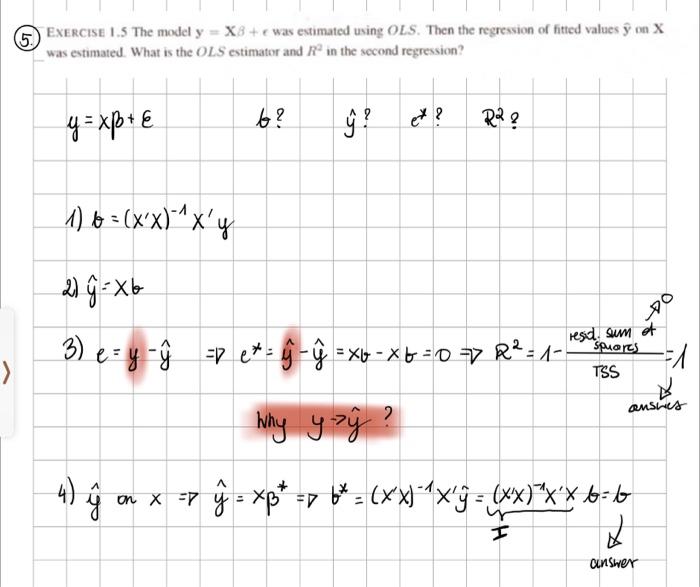 5.
EXERCISE 1.5 The model y = Xβ + ϵ was estimated using OLS. Then the regression of fitted values ŷ on X
was estimated. What is the OLS estimator and R² in the second regression?
y = xβ + ε b? ŷ? e*? R²?
1) b = (x'x)⁻¹ x'y
2) ŷ = xb
3) e = y - ŷ ⇒ e* = ŷ - ŷ = xb - xb = 0 ⇒ R² = 1 - resid. sum of squares / TSS = 1
0
answer
Why y → ŷ ?
4) ŷ on x ⇒ ŷ = xβ* ⇒ b* = (x'x)⁻¹ x'ŷ = (x'x)⁻¹x'x b = b
I
answer